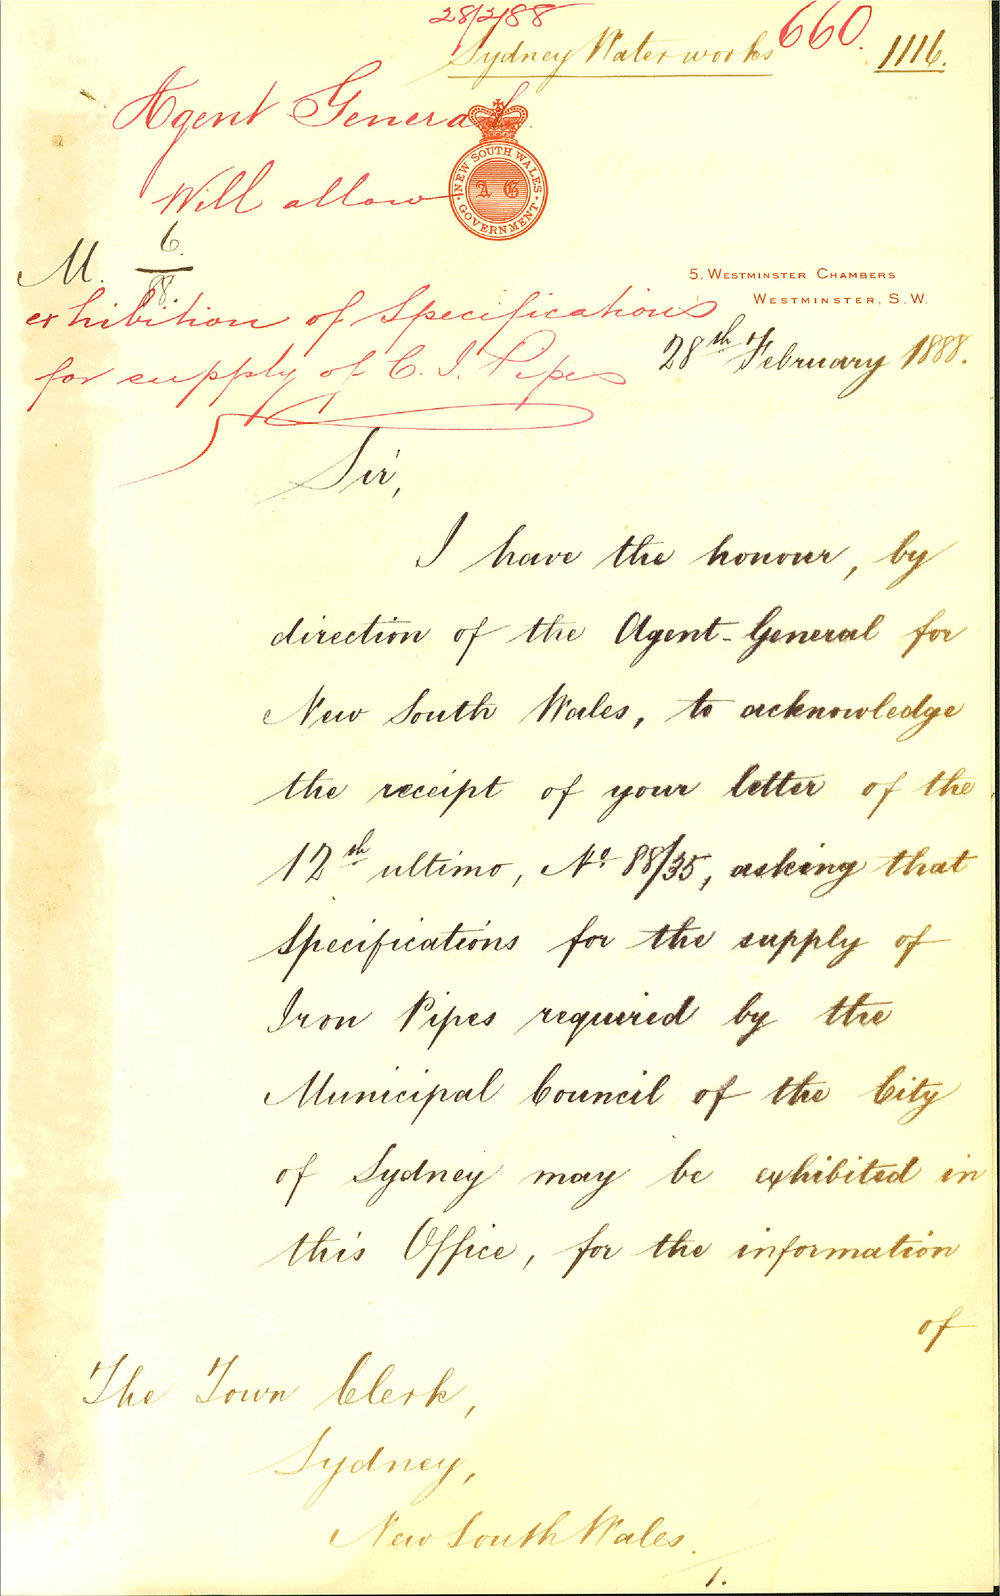 28/2/88
Sydney Waterworks 660. 1116.
Agent General
NEW SOUTH WALES
A G
GOVERNMENT
Will allow
M. 6/88.
5, WESTMINSTER CHAMBERS
WESTMINSTER, S.W.
exhibition of Specifications
for supply of C. I. Pipes
28th February 1888.
Sir,
I have the honour, by
direction of the Agent-General for
New South Wales, to acknowledge
the receipt of your letter of the
12th ultimo, No. 88/35, asking that
Specifications for the supply of
Iron Pipes required by the
Municipal Council of the City
of Sydney may be exhibited in
this Office, for the information
of
The Town Clerk,
Sydney,
New South Wales.
1.